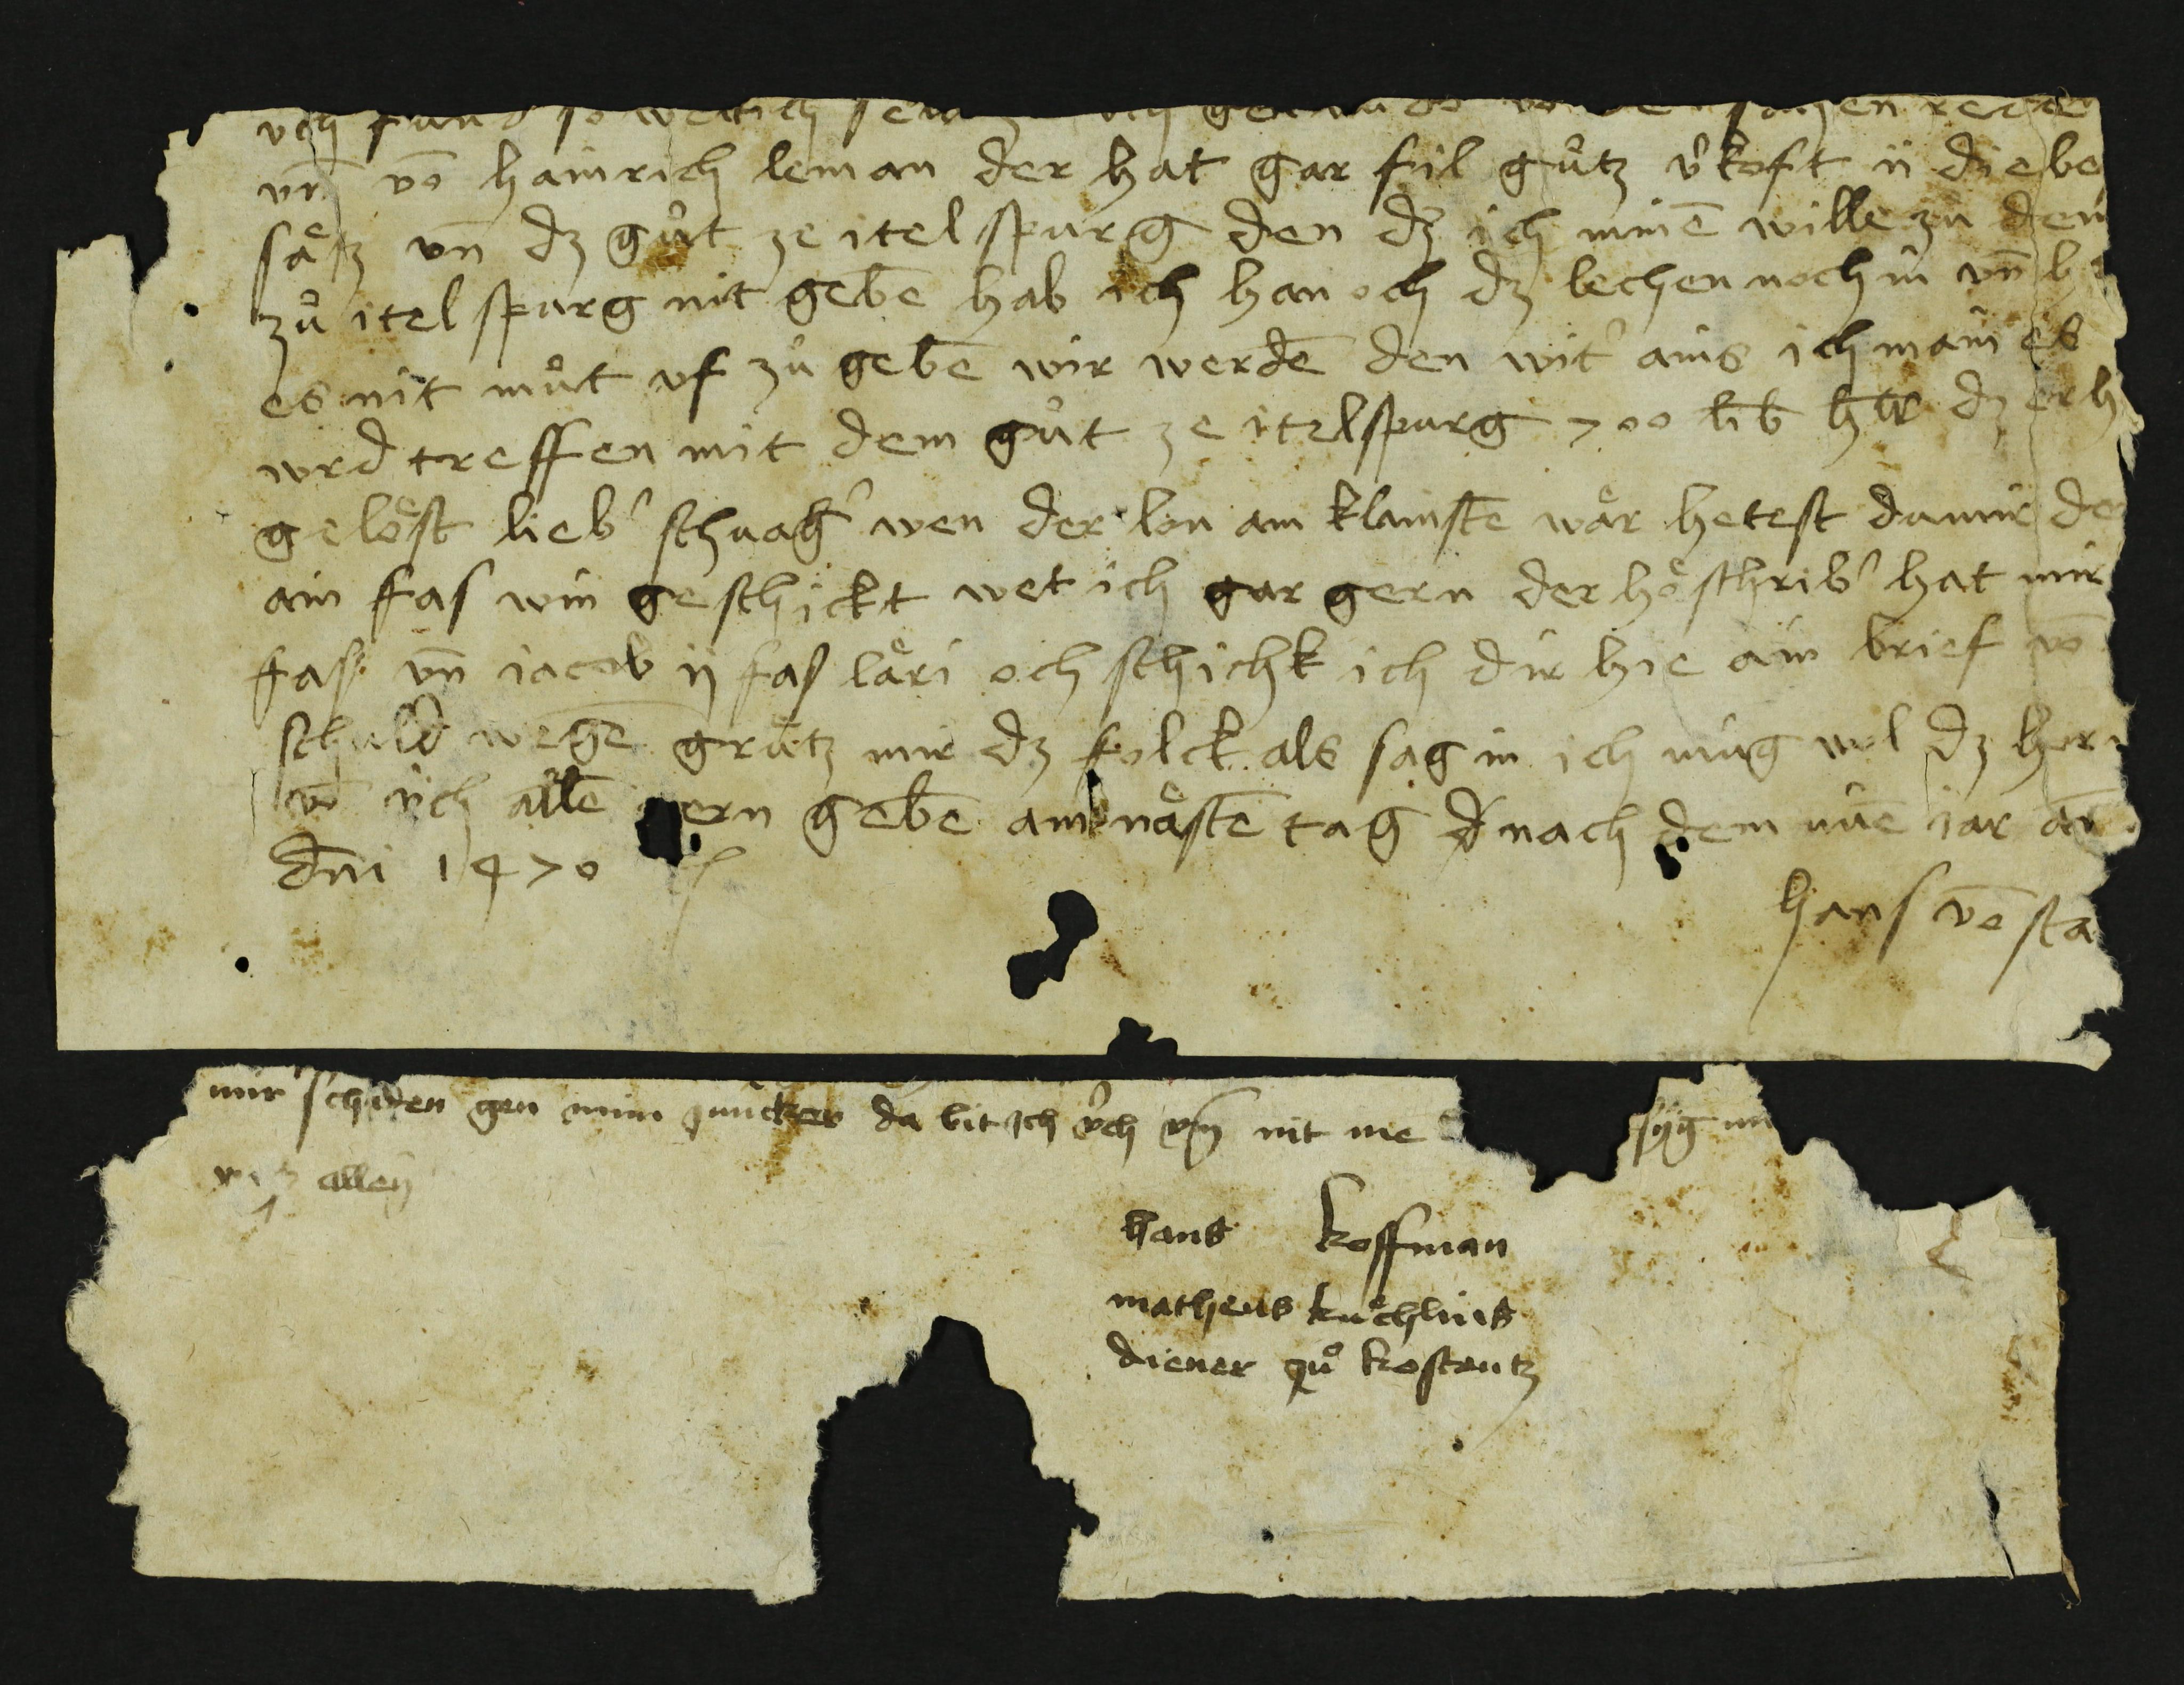 vch fund so welt ich
vn̄ vō hainrich leman der hat gar fil guͦtz v̓koft ii diebe
saͤtz vn̄ dz guͦt ze itelspurg den dz ich minē wille zuͦ dem
zuͦ itelspurg nit gebē hab ich han och dz lechen noch in vn̄ b
es nit muͦt vf zuͦ gebē wir werdē den wit̓ ains ich main es
wrd treffen mit dem guͦt ze itelspurg 700 lib hlr dz er h
geloͤst lieb̓ schuag̓ wen der lon am klainstē waͤr hetest du mir de
ain fas win geschickt wet ich gar gern der hoͤschrib̓ hat mir
fas vn̄ iacob ij fas laͤri och schichk ich dir hie ain brief vō
schuld wegē gruͤtz mir dz folck als sag in ich mug wol dz hor
vō üch allē gern gebē am naͤstē tag d nach dem nüē iar an̄
dn̄i 1470
hans vō sta
mir schiden gen mim da bit ich v̓ch vm̄ nit me syg
allen
hans koffman
matheus kuͤchlins
diener zuͦ kostentz